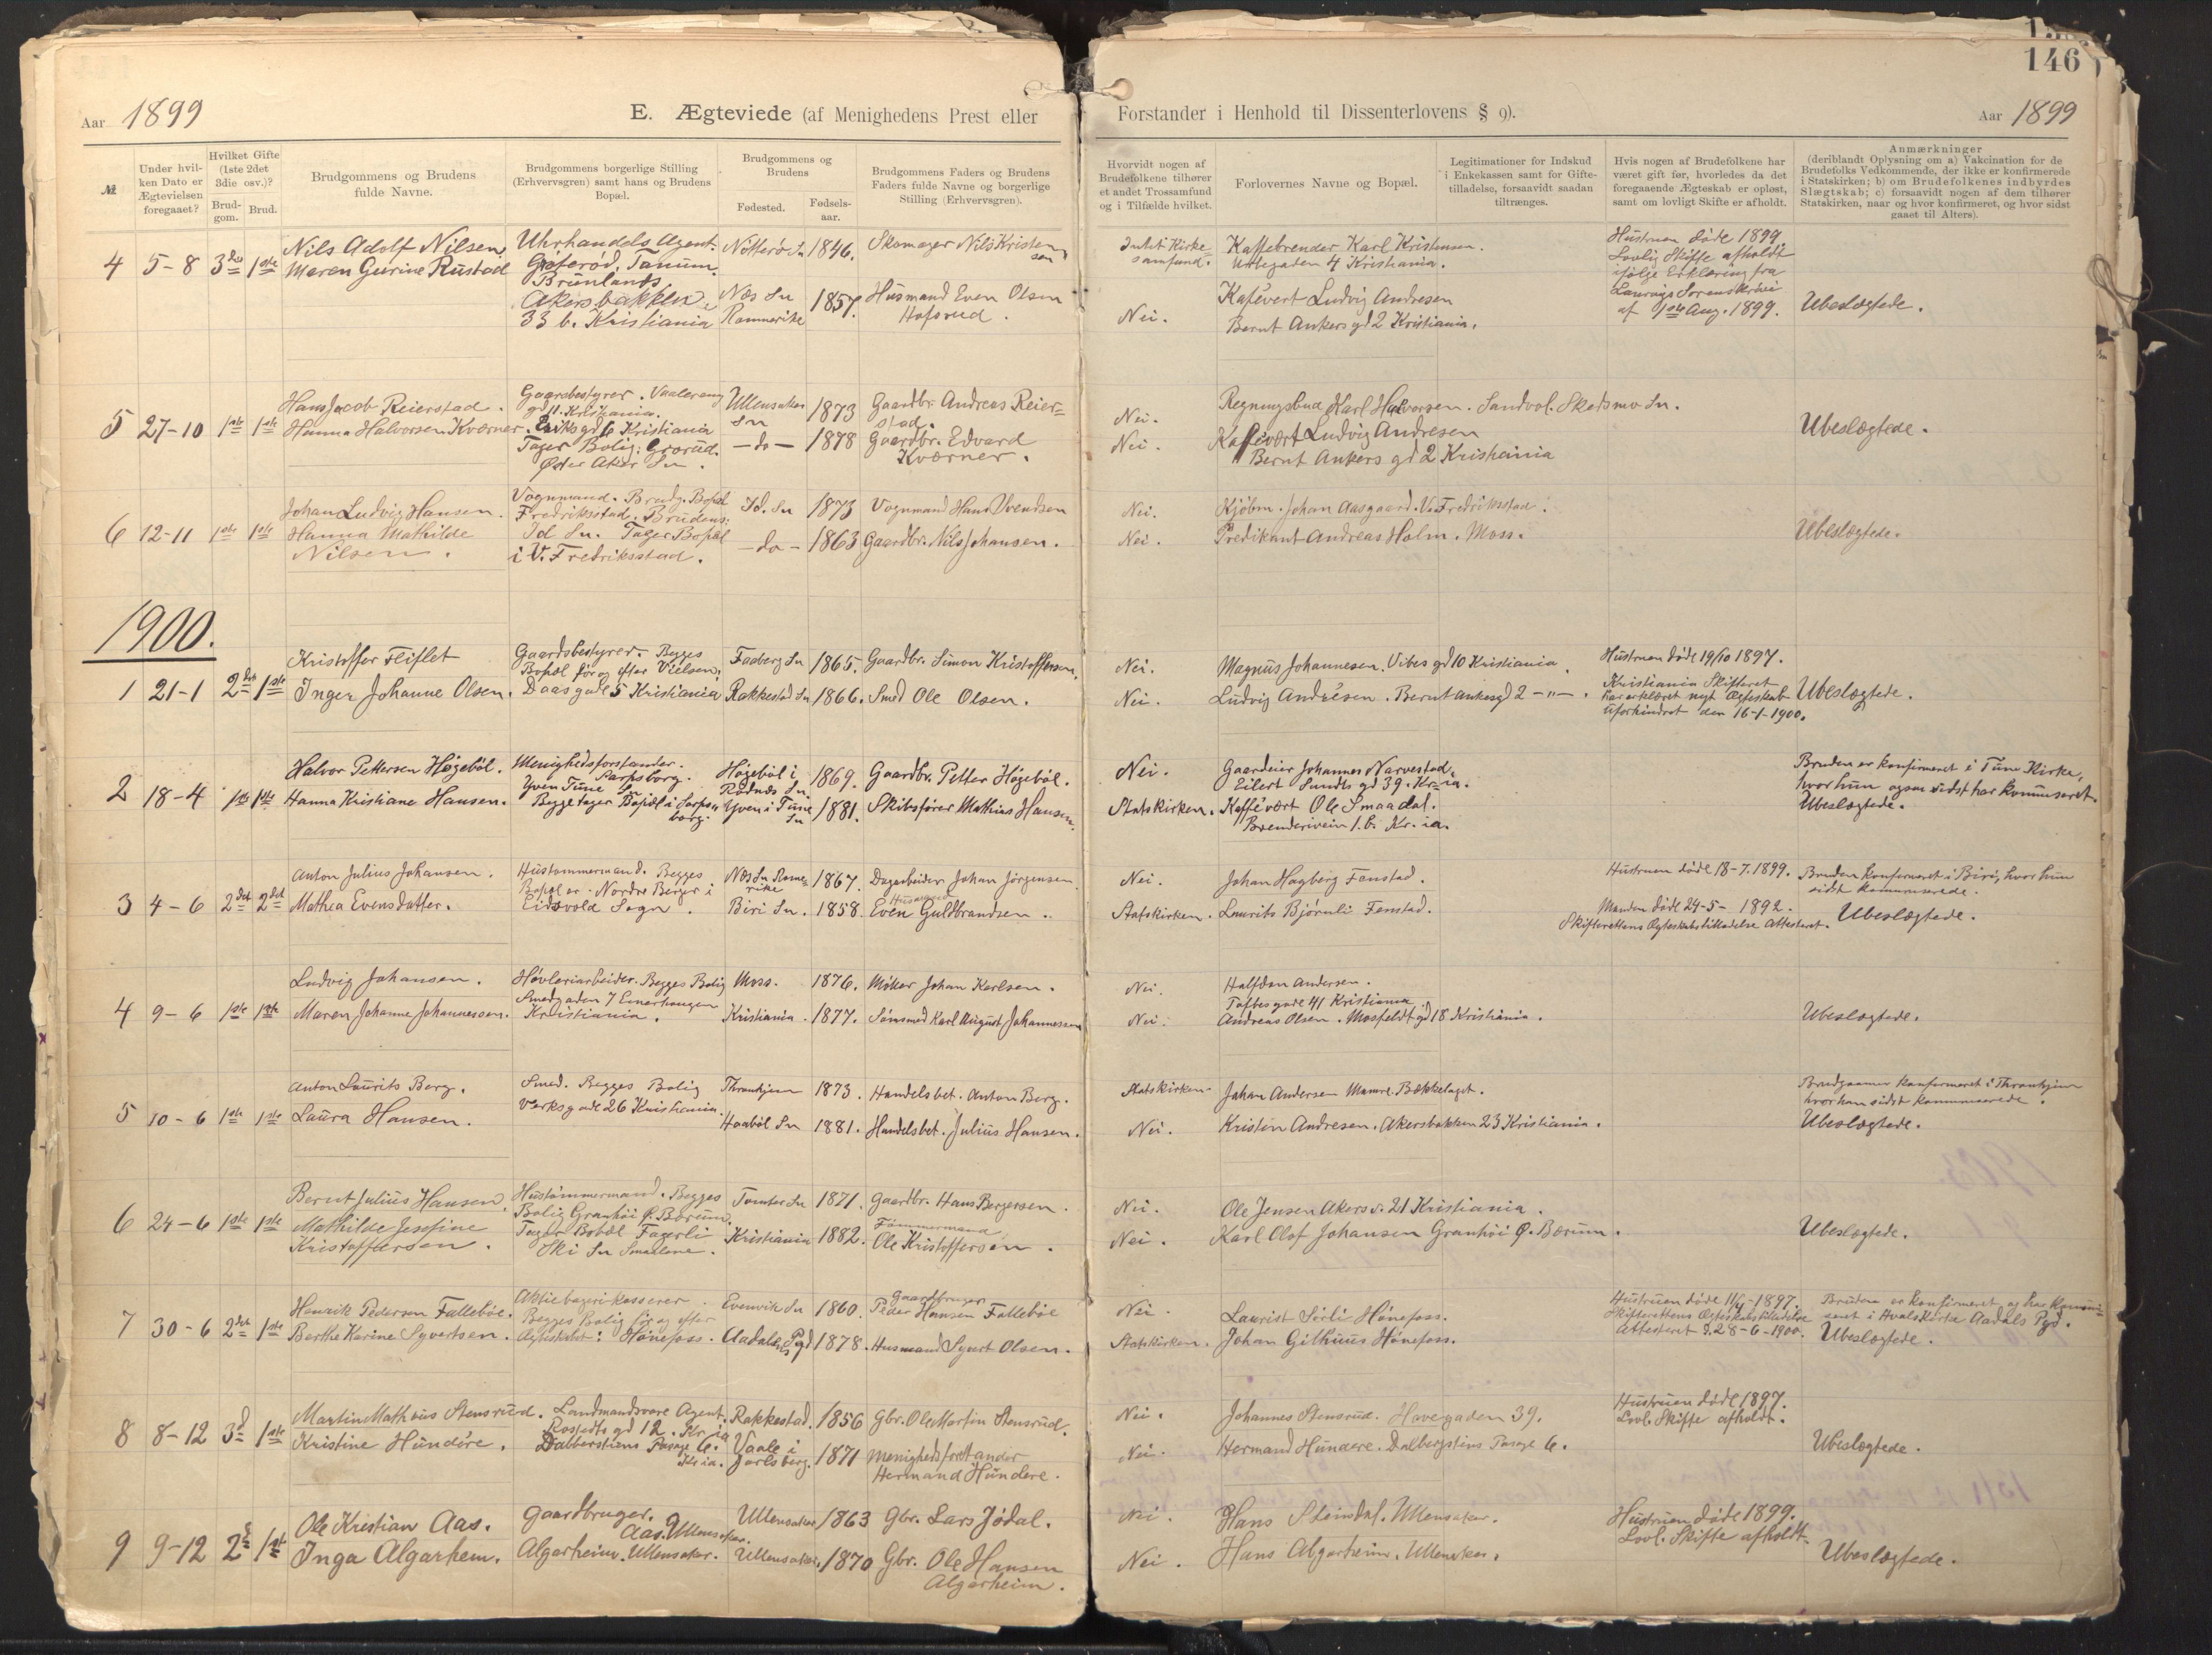 146
Aar 1899
E. Ægteviede (af Menighedens Prest eller
Forstander i Henhold til Dissenterlovens § 9).
Aar 1899
№
Under hvil-
ken Dato er
Ægtevielsen
foregaaet?
Hvilket Gifte
(1ste 2det
3die osv.)?
Brud-
gom.
Brud.
Brudgommens og Brudens
fulde Navne.
Brudgommens borgerlige Stilling
(Erhvervsgren) samt hans og Brudens
Bopæl.
Brudgommens og
Brudens
Fødested.
Fødsels-
aar.
Brudgommens Faders og Brudens
Faders fulde Navne og borgerlige
Stilling (Erhvervsgren).
Hvorvidt nogen af
Brudefolkene tilhører
et andet Trossamfund
og i Tilfælde hvilket.
Forlovernes Navne og Bopæl.
Legitimationer for Indskud
i Enkekassen samt for Gifte-
tilladelse, forsaavidt saadan
tiltrænges.
Hvis nogen af Brudefolkene har
været gift før, hvorledes da det
foregaaende Ægteskab er opløst,
samt om lovligt Skifte er afholdt.
Anmærkninger
(deriblandt Oplysning om a) Vakcination for de
Brudefolks Vedkommende, der ikke er konfirmerede
i Statskirken; b) om Brudefolkenes indbyrdes
Slægtskab; c) forsaavidt nogen af dem tilhører
Statskirken, naar og hvor konfirmeret, og hvor sidst
gaaet til Alters).
4 5-8 3die 1ste
Nils Adolf Nilsen
Maren Gurine Rustad
Uhrhandels Agent.
Tanum.
Brunlanæs
Akersbakken
33 b. Kristiania
Nøtterø Sn 1846.
Næs Sn 1857.
Romerike
Skomager Nils Kristen
sen
Husmand Even Olsen
Hofsrud.
Intet Kirke
samfund.
Nei.
Kaffebrender Karl Kristensen.
4 Kristiania.
Kafévert Ludvig Andresen
Bernt Ankers gd 2 Kristiania.
Hustruen døde 1899
Lovlig Skifte afholdt
ifølge Erklæring fra
Laurvigs Sorenskriveri
af 1ste Aug. 1899.
Ubeslægtede.
5 27-10 1ste 1ste
Hans Jacob Reierstad.
Hanna Halvorsen Kværner.
Gaardbestyrer. Vaalereng
gd 11. Kristiania.
Eriks gd 6 Kristiania
Tager Bolig: Grorud.
Øster Aker Sn.
Ullensaker 1873
Sn
-do- 1878
Gaardbr. Andreas Reier=
stad.
Gaardbr. Edvard
Kværner.
Nei.
Nei.
Regningsbud Karl Halvorsen. Sandvol. Skedsmo Sn.
Kaffévært Ludvig Andresen
Bernt Ankers gd 2 Kristiania
Ubeslægtede.
6 12-11 1ste 1ste
Johan Ludvig Hansen.
Hanna Mathilde
Nilsen.
Vognmand. Brudg. Bopæl
Fredriksstad. Brudens:
Id Sn. Tager Bopæl
i V. Fredriksstad.
Id. Sn 1873
-do- 1863
Vognmand Hans Svendsen
Gaardbr. Nils Johansen.
Nei.
Nei.
Kjøbm. Johan Aasgaard. V. Fredriksstad.
Predikant Andreas Holm. Moss.
Ubeslægtede.
1900.
1 21-1 2det 1ste
Kristoffer Fliflet
Inger Johanne Olsen.
Gaardsbestyrer. Begges
Bopæl før og efter Vielsen:
Daas gade 5 Kristiania
Faaberg Sn 1865.
Rakkestad Sn 1866.
Gaardbr. Simon Kristoffersen
Smed Ole Olsen.
Nei.
Nei.
Magnus Johannesen. Vibes gd 10 Kristiania.
Ludvig Andresen. Bernt Ankersgd 2 -"-.
Hustruen døde 19/10 1897.
Kristiania Skifteret
har erklæret nyt Ægteskab
uforhindret den 16-1-1900.
Ubeslægtede.
2 18-4 1ste 1ste
Halvor Pettersen Høgebøl.
Hanna Kristiane Hansen.
Menighedsforstander.
Sarpsborg.
Yven Tune
Begge tager Bopæl i Sarps
borg.
Høgebøl i 1869.
Rødnæs Sn.
Yven i Tune 1881.
Sn
Gaardbr. Petter Høgebøl.
Skibsfører Mathias Hansen.
Nei.
Statskirken.
Gaardeier Johannes Narvestad,
Eilert Sundts gd 39. Kr-ia.
Kaffévært Ole Smaadal.
Brenderivein 1. b. Kr. ia.
Bruden er konfirmeret i Tune Kirke,
hvor hun ogsaa sidst har kommuniceret.
Ubeslægtede.
3 4-6 2det 2det
Anton Julius Johansen.
Mathea Evensdatter.
Hustømmermand. Begges
Bopæl er. Nordre Berger i
Eidsvold Sogn.
Næs Sn Rome- 1867.
rike
Biri Sn. 1858.
Dagarbeider Johan Jörgensen
Husmand
Even Guldbrandsen.
Nei.
Statskirken.
Johan Hagberg Fenstad.
Laurits Bjørnli Fenstad.
Hustruen døde 18-7. 1899.
Manden døde 24-5- 1892.
Skifterettens Ægteskabstilladelse Attesteret.
Bruden konfirmeret i Biri, hvor hun
sidst kommunicerede.
Ubeslægtede.
4 9-6 1ste 1ste
Ludvig Johansen.
Maren Johanne Johannessen.
Høvleriarbeider. Begges Bolig
Smedgaden 7 Enerhaugen
Kristiania.
Moss. 1876.
Kristiania. 1877.
Johan Karlsen.
Karl August Johannessen
Nei.
Nei.
Halfdan Andersen.
Toftes gade 41 Kristiania.
Andreas Olsen. Mosfeldt gd 18 Kristiania.
Ubeslægtede.
5 10-6 1ste 1ste
Anton Laurits Berg.
Laura Hansen.
Smed. Begges Bolig
Verksgade 26 Kristiania.
Thronhjem 1873.
Haabøl Sn 1881.
Handelsbet. Anton Berg.
Handelsbet. Julius Hansen.
Statskirken
Nei.
Johan Andersen Mamre. Bækkelaget.
Kristin Andresen. Akersbakken 23 Kristiania.
Brudgommen konfirmeret i Thronhjem
hvor han sidst kommunicerede.
Ubeslægtede.
6 24-6 1ste 1ste
Bernt Julius Hansen
Mathilde Josefine
Kristoffersen.
Hustømmermand. Begges
Bolig Granhøi Ø. Bærum.
Tager Bopæl Fagerli
Ski Sn Smaalene.
Tomter Sn 1871.
Kristiania 1882.
Gaardbr. Hans Bergersen.
Tømmermand
Ole Kristoffersen.
Nei.
Nei.
Ole Jensen Akersv. 21 Kristiania.
Karl Olof Johansen Granhøi Ø. Bærum.
Ubeslægtede.
7 30-6 2det 1ste
Henrik Pedersen Fallebøe.
Berthe Karine Syvertsen.
Aktiebageri kasserer.
Begges Bolig før og efter
Ægteskabet: Hønefoss.
Evenvik Sn 1860.
Aadalens Pgd 1878.
Gaardbruger
Peder Hansen Fallebøe
Husmand Syvert Olsen.
Nei.
Statskirken.
Laurist Sørli Hønefoss.
Johan Gilhuus Hønefoss.
Hustruen døde 11/4-1897.
Skifterettens Ægteskabstilladelse
Attesteret d. 28-6-1900.
Bruden er konfirmeret og har kommuni-
ceret i Hvalskirke Aadals Pgd.
Ubeslægtede.
8 8-12 3d 1ste
Martin Mathæus Stensrud.
Kristine Hundere.
Landmandsvare Agent.
gd 12. Kr ia
Dalbergstiens Pasage 6.
Kr ia.
Rakkestad. 1856
Vaale i 1871
Jarlsberg.
Gbr. Ole Martin Stensrud.
Menighedsforstander
Hermand Hundere.
Nei.
Nei.
Johannes Stensrud. Havegaden 39.
Hermand Hundere. Dalbergstiens Pasage 6.
Hustruen døde 1897.
Lovl. Skifte afholdt.
Ubeslægtede.
9 9-12 2d 1ste
Ole Kristian Aas.
Inga Algarhem.
Gaardbruger.
Aas. Ullensaker.
Algarheim. Ullensaker.
Ullensaker 1863
Ullensaker. 1870
Gbr. Lars Jødal.
Gbr. Ole Hansen
Algarheim.
Nei.
Nei.
Hans Steindal. Ullensaker.
Hans Algarheim. Ullensaker.
Hustruen døde 1899.
Lovl. Skifte afholdt.
Ubeslægtede.